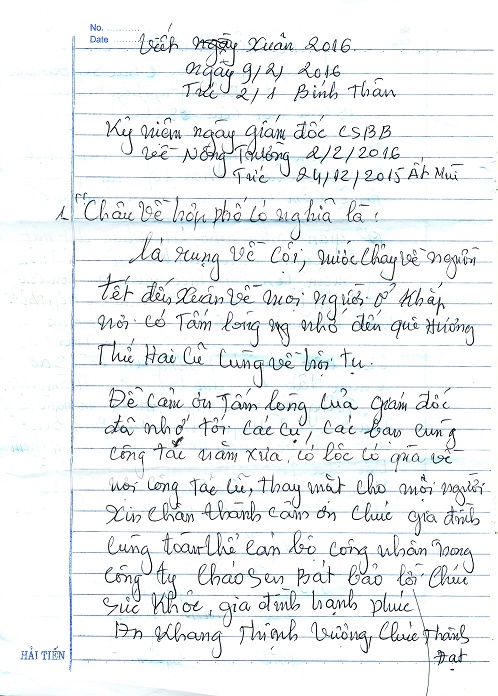 No.
Date
Viết ngày Xuân 2016.
ngày 9/2/2016
Tức 2/1 Bính Thân
Kỷ niệm ngày giám đốc CSBB
về Nông Trường 2/2/2016
Tức 24/12/2015 Ất Mùi
1. "Châu về hợp phố có nghĩa là:
lá rụng về cội, nước chảy về nguồn
tết đến Xuân về mọi người ở khắp
nơi có Tấm lòng nhớ đến quê Hương
Thứ Hai Cũ Cùng về hội tụ.
Để cảm ơn Tấm lòng của giám đốc
đã nhớ tới các cụ, các bạn cùng
công tác năm xưa, có lộc có quà về
nơi công tác cũ, thay mặt cho mọi người
xin chân thành cảm ơn chúc gia đình
cùng toàn thể cán bộ công nhân trong
công ty cháo sen bát bảo lời chúc
sức khỏe, gia đình hạnh phúc
An Khang Thịnh Vượng, Chúc Thành
Đạt
HẢI TIẾN